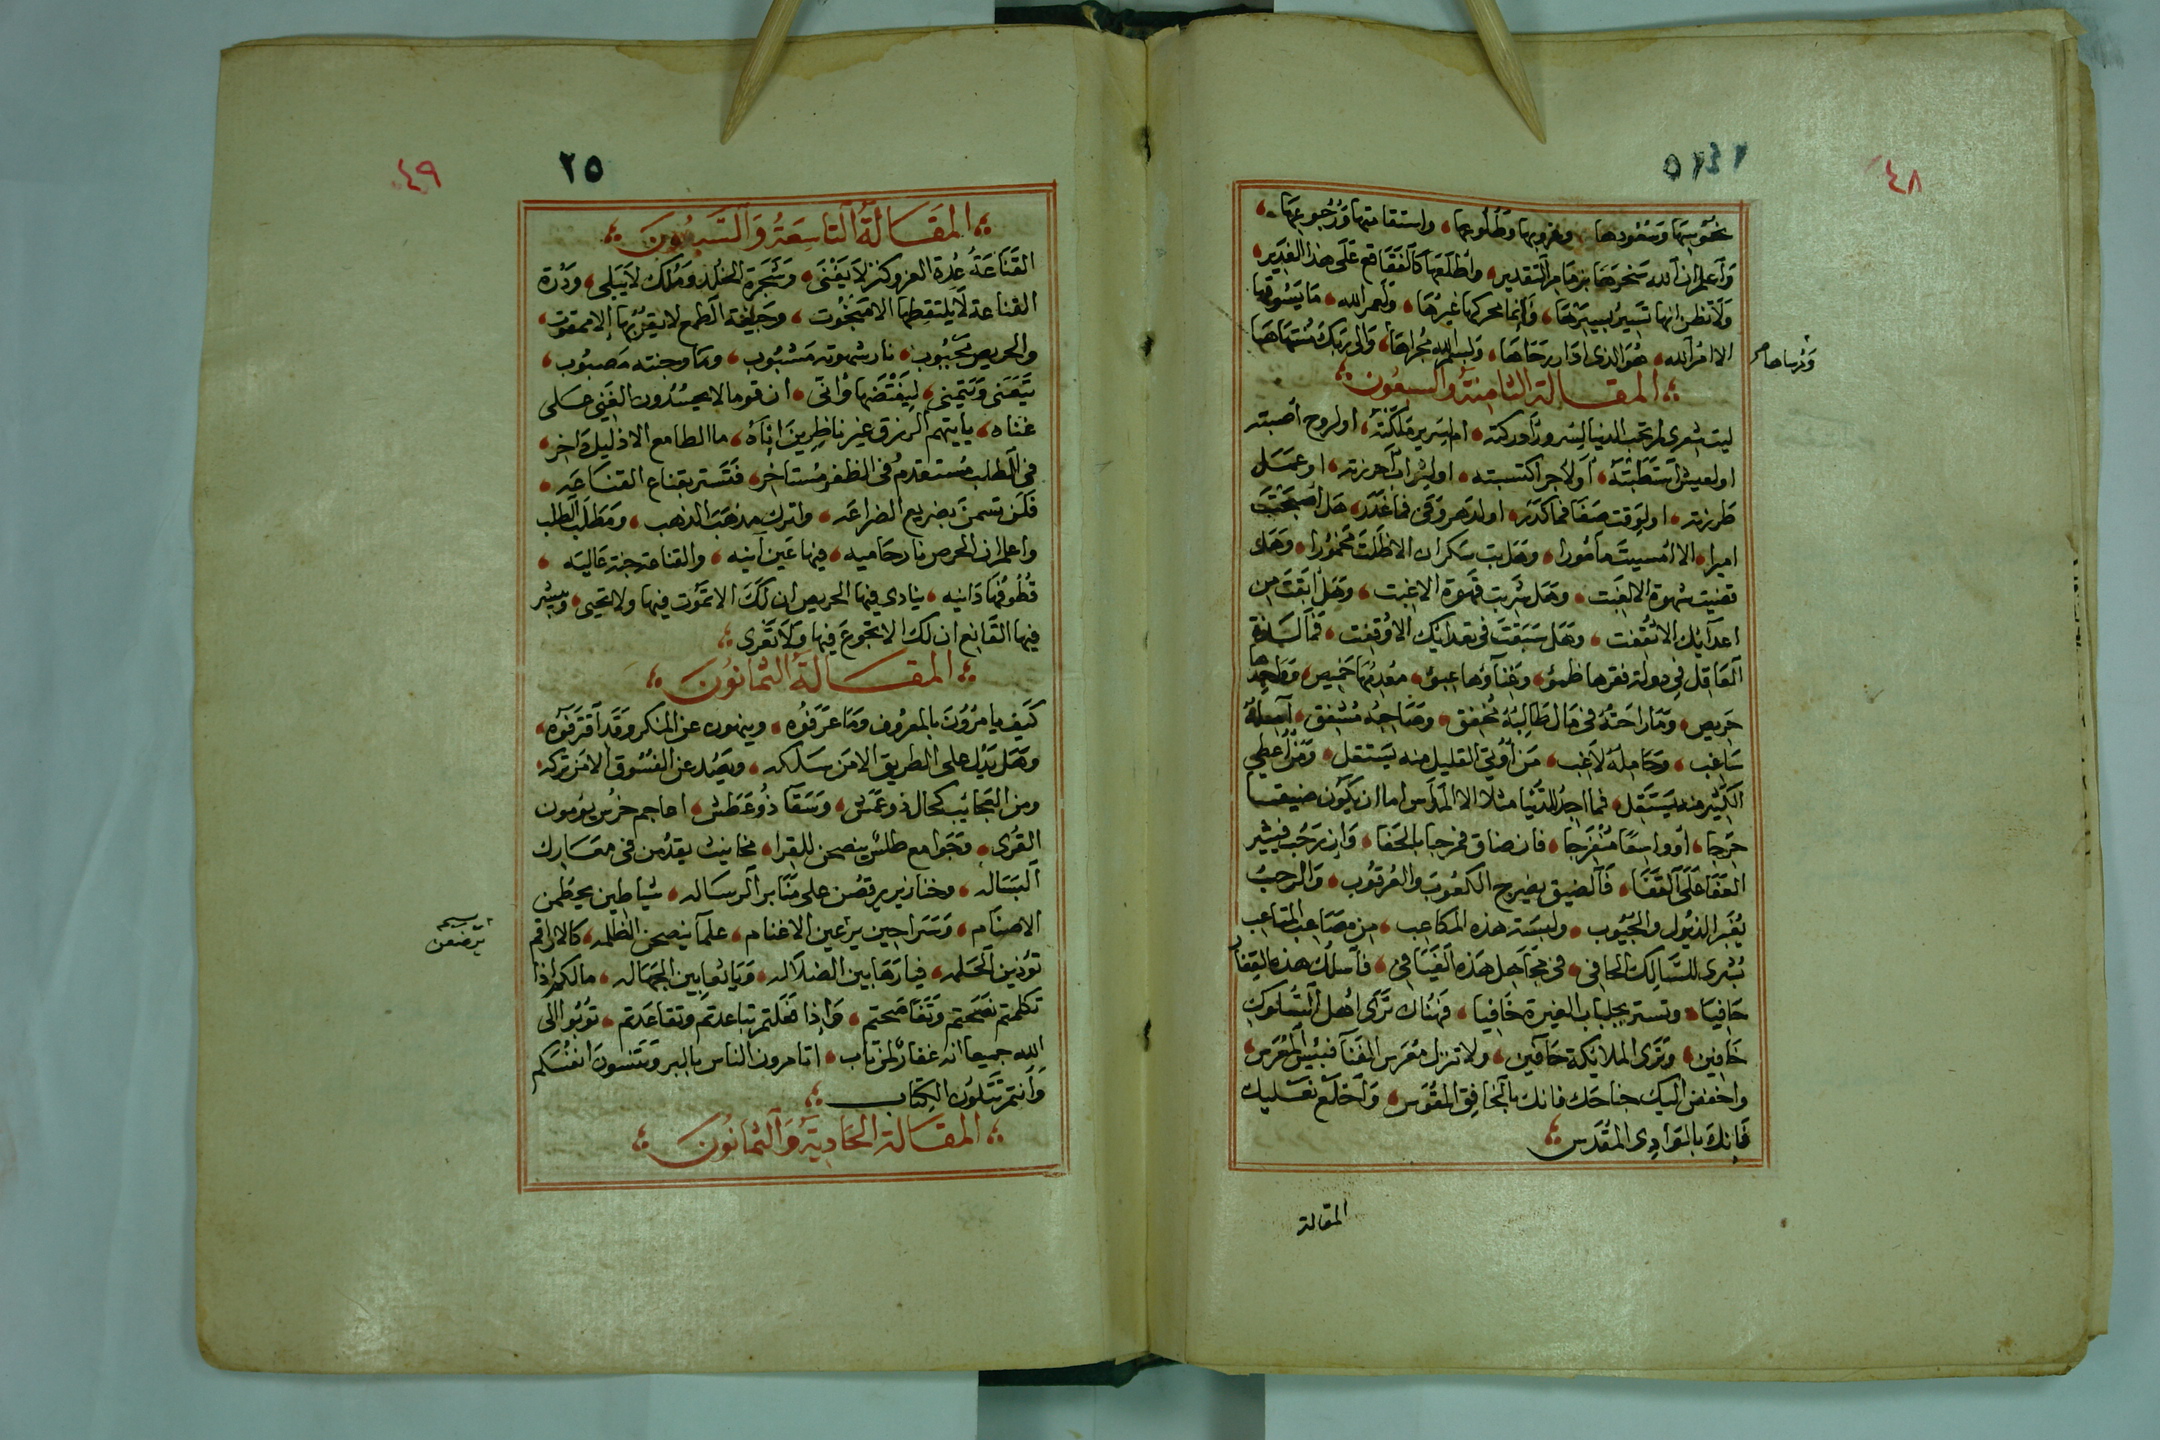 ٤٨
نحوسها وسعودها وغروبها وطلوعها واستقامتها ورجوعها
واعلم ان الله سخرها بزمام التقدير واطلعها كالفقاقع على هذا الغدير
ولا تظن انها تسير بسيرها وانما محركها غيرها ولعمر الله ما يسوقها
الا امر الله هو الذى ادار رحاها وبسم الله مجراها والى ربك منتهاها
ومرساها صح
المقالة الثامنة والسبعون
ليت شعرى لم تحب الدنيا لسرور ادركته ام لسرير ملكته او لروح اصبته
او لعيش استطبته او لاجر اكتسبته او لثواب احرزته او عمل
طرزته او لوقت صفا فما كدر او لدهر وفى فما غدر هل اصبحت
اميرا الا امسيت مامورا وهل بت سكران الا ظلت مخمورا وهل
قضيت شهوة الا لغبت وهل شربت قهوة الا غبت وهل ابقت من
اعدآئك الا ثقفت وهل سبقت فى تعدايك الا وقفت فما لذة
العاقل فى دولة فقرها ظمؤ وغنآؤها عبؤ معدمها خميص وواجدها
حريص وما راحته فى مال طالبه مخفق وصاحبه مشفق آمله
ساغب وحامله لاغب من أوتي القليل منه يستقل ومن أعطي
الكثير منه يستقل فما اجد للدنيا مثلا الا المداس اما ان يكون ضيقا
حرجا او واسعا منفرجا فان ضاق فمرحبا بالحفا وان رحب فيثير
العفا على القفا فالضيق يضرج الكعوب والعرقوب والرحب
يغبر الذيول والجيوب ولبسته هذه المكاعب من مصاعب المتاعب
بشرى للسالك الحافى فى مجاهل هذه الفيافى فاسلك هذه القفار
حافيا وتستر بجلباب الغيرة خافيا فهناك ترى اهل السلوك
خافين وترى الملايكة حآفين ولا تنزل معرس الفنآ فبئس المعرس
واخفض اليك جناحك فانك بالخافق المقوس واخلع نعليك
فانك بالوادى المقدس
المقالة
٤٩
٢٥
المقالة التاسعة والسبعون
القناعة عدة العز وكنز لا يفنى وشجرة الخلد وملك لا يبلى ودرة
القناعة لا يلتقطها الا مبخوت وجيفة الطمع لا يقربها إلا ممقوت
والحريص نار شهوته مشبوب ومآ وجنته مصبوب
يتعنى ويتمنى ليفتضها وانى ان قوما لا يحسدون الغني على
غناه يايتهم الرزق غير ناظرين اناه ما الطامع الا ذليل داخر
فى الطلب مستقدم فى الظفر مستاخر فتستر بقناع القناعه
فلن تسمن بضريع الضراعه واترك مذهب الذهب ومطلب الطلب
واعلم ان الحرص نار حاميه فيها عين آنيه والقناعة جنة عاليه
قطوفها دانيه ينادى فيها الحريص ان لك الا تموت فيها ولا تحيى ويبشر
فيها القانع ان لك الا تجوع فيها ولا تعرى
المقالة الثمانون
كيف يامرون بالمعروف وما عرفوه وينهون عن المنكر وقد اقترفوه
وهل يدل على الطريق الا من سلكه ويصد عن الفسوق الا من تركه
ومن العجايب كحال ذو عمش وسقآ ذو عطش اعاجم خرس يؤمون
القرى وجوامع طلس ينصحن للقرا مخانيث يقدمن فى معارك
البساله وخنازير يرقصن على منابر الرساله شياطين يحطمن
الاصنام وسراحين يرعين الاغنام علمآ ينصحن الظلمه كالاراقم
يرضعن
تؤذين الحلمه فيا رهابين الضلاله ويا ثعابين الجهاله ما لكم اذا
تكلمتم نصحتم وتفاصحتم واذا فعلتم تباعدتم وتقاعدتم توبوا الى
الله جميعا انه غفار لمن تاب اتامرون الناس بالبر وتنسون انفسكم
وانتم تتلون الكتاب
المقالة الحادية والثمانون